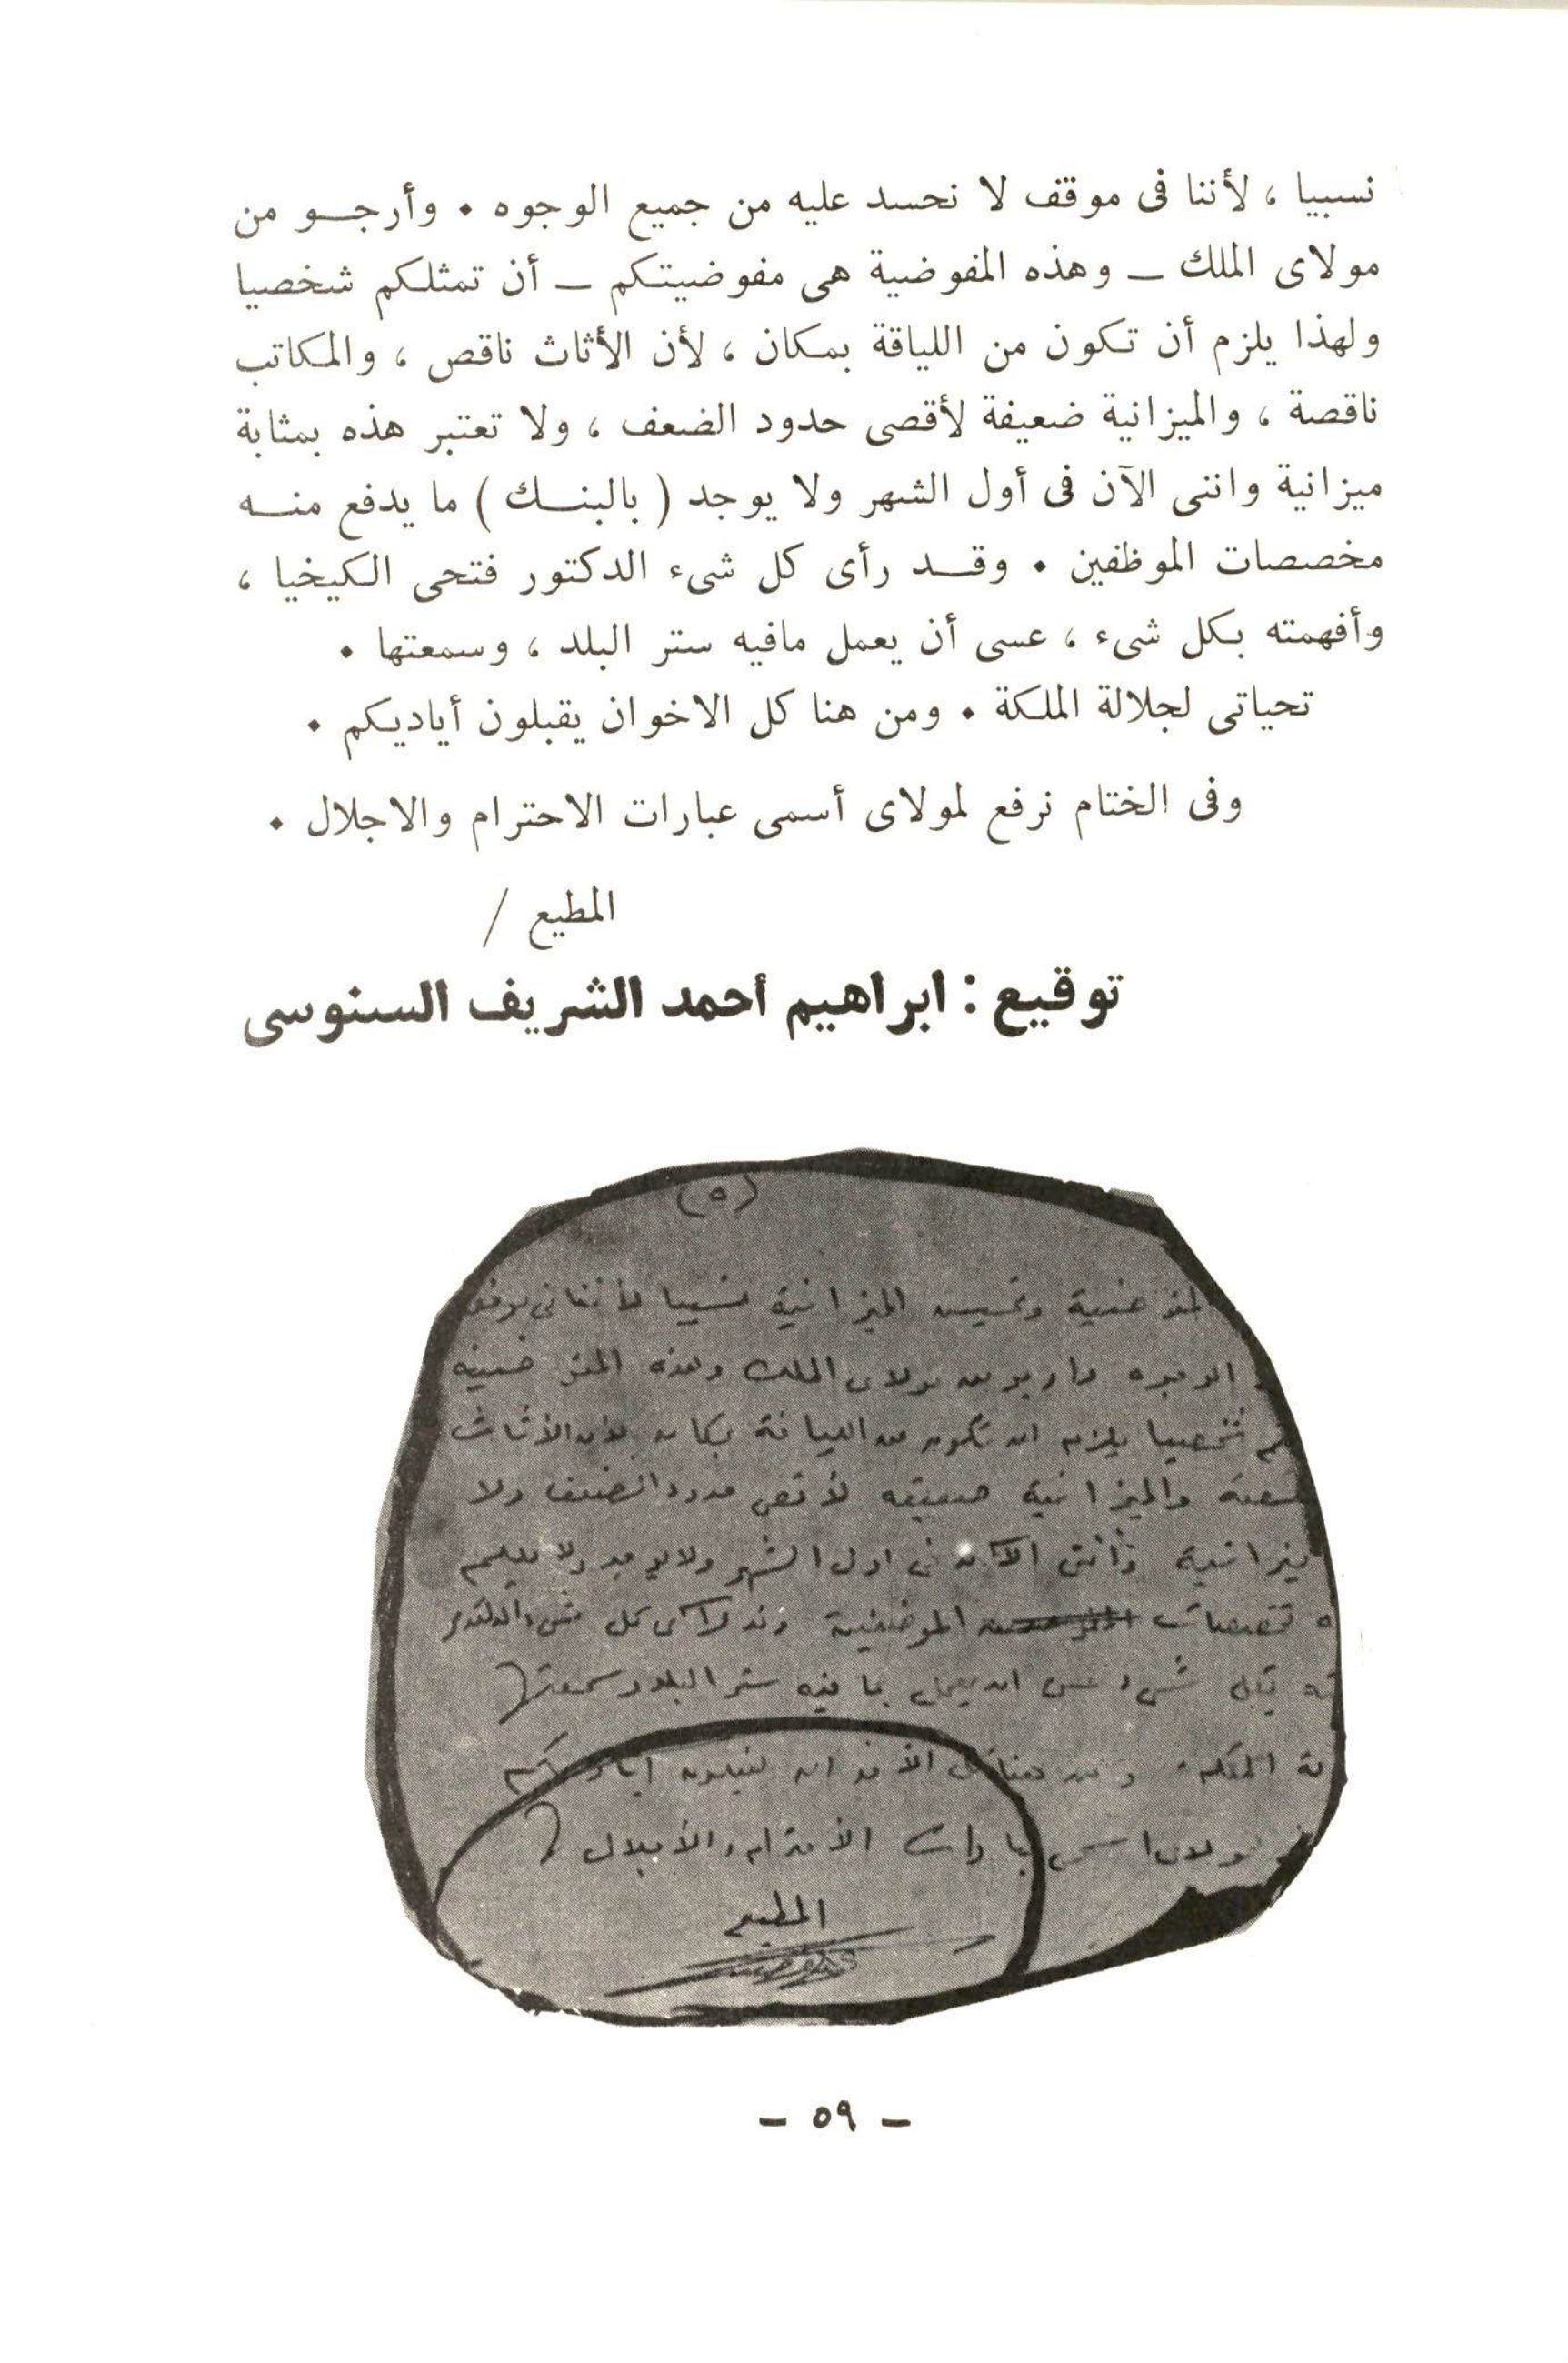 نسبيا ، لأننا فى موقف لا نحسد عليه من جميع الوجوه . وأرجــو من
مولاى الملك ــ وهذه المفوضية هى مفوضيتكم ــ أن تمثلكم شخصيا
ولهذا يلزم أن تكون من اللياقة بمكان ، لأن الأثاث ناقص ، والمكاتب
ناقصة ، والميزانية ضعيفة لأقصى حدود الضعف ، ولا تعتبر هذه بمثابة
ميزانية واننى الآن فى أول الشهر ولا يوجد ( بالبنــك ) ما يدفع منــه
مخصصات الموظفين . وقــد رأى كل شىء الدكتور فتحى الكيخيا ،
وأفهمته بكل شىء ، عسى أن يعمل مافيه ستر البلد ، وسمعتها .
تحياتى لجلالة الملكة . ومن هنا كل الاخوان يقبلون أياديكم .
وفى الختام نرفع لمولاى أسمى عبارات الاحترام والاجلال .
المطيع /
توقيع : ابراهيم أحمد الشريف السنوسى
(٥)
المفوضية وتحسين الميزانية نسبيا لأننا فى موقف
الوجوه وارجو من مولاى الملك وهذه المفوضية
شخصيا يلزم ان تكون من اللياقة بمكان لأن الأثاث
والميزانية ضعيفه لأقصى حدود الضعف ولا
ميزانية وأننى الآن فى اول الشهر ولا يوجد
مخصصات الموظفين وقد رأى كل شىء الدكتور
بكل شىء عسى ان يعمل بما فيه ستر البلد وسمعتها
ومن هنا كل الأخوان يقبلون اياديكم
مولاى اسمى عبارات الأحترام والأجلال
المطيع
— ٥٩ —